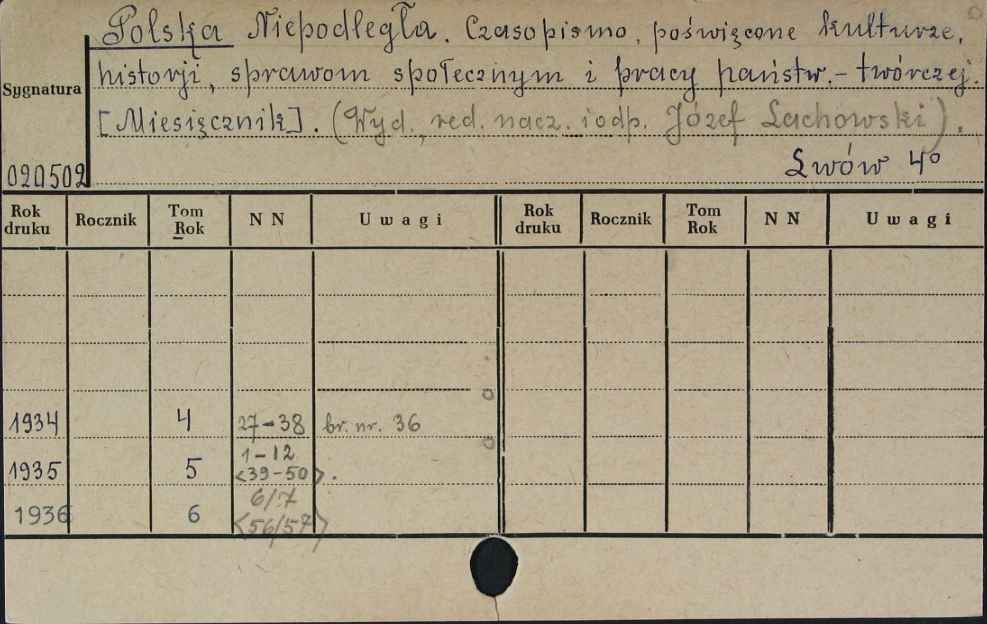 Polska Niepodległa. Czasopismo, poświęcone kulturze,
historji, sprawom społecznym i pracy państw.-twórczej.
[Miesięcznik]. (Wyd., red. nacz. i odp. Józef Lachowski).
Lwów 4°
Sygnatura
020502
Rok druku Rocznik Tom Rok NN Uwagi Rok druku Rocznik Tom Rok NN Uwagi
1934 4 27-38 br. nr. 36
1935 5 1-12
<39-50>.
1936 6 6/7
<56/57>